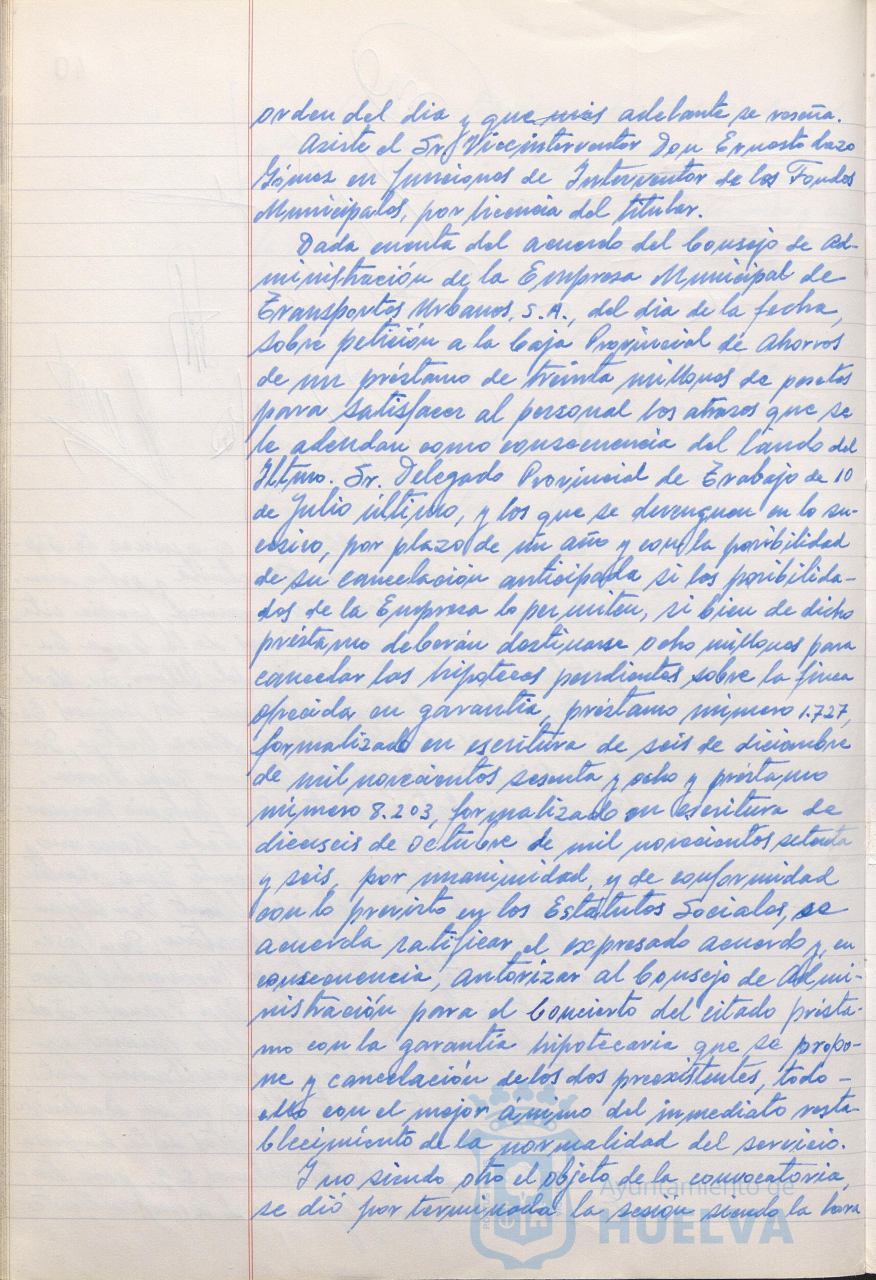 orden del dia y que más adelante se reseña.
Asiste el Sr. Viceinterventor Don Ernesto Lazo
Gómez en funciones de Interventor de los Fondos
Municipales, por licencia del titular.
Dada cuenta del acuerdo del Consejo de Ad-
ministración de la Empresa Municipal de
Transportes Urbanos, S.A., del dia de la fecha,
sobre petición a la Caja Provincial de Ahorros
de un préstamo de treinta millones de pesetas
para satisfacer al personal los atrasos que se
le adeudan como consecuencia del laudo del
Iltmo. Sr. Delegado Provincial de Trabajo de 10
de Julio último, y los que se devenguen en lo su-
cesivo, por plazo de un año y con la posibilidad
de su cancelación anticipada si las posibilida-
des de la Empresa lo permiten, si bien de dicho
préstamo deberán destinarse ocho millones para
cancelar las hipotecas pendientes sobre la finca
ofrecida en garantía, préstamo número 1.727,
formalizado en escritura de seis de diciembre
de mil novecientos sesenta y ocho y préstamo
número 8.203, formalizado en escritura de
dieciseis de octubre de mil novecientos setenta
y seis, por unanimidad, y de conformidad
con lo previsto en los Estatutos Sociales, se
acuerda ratificar el expresado acuerdo y, en
consecuencia, autorizar al Consejo de Admi-
nistración para el concierto del citado présta-
mo con la garantía hipotecaria que se propo-
ne y cancelación de los dos preexistentes, todo
ello con el mejor ánimo del inmediato resta-
blecimiento de la normalidad del servicio.
Y no siendo otro el objeto de la convocatoria,
se dió por terminada la sesión siendo la hora
Ayuntamiento de
HUELVA